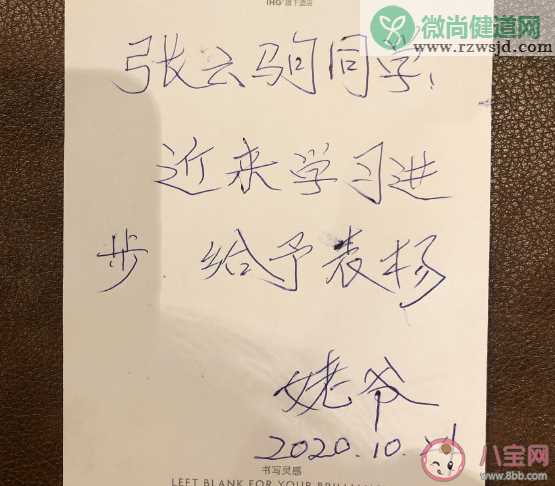 IHG® 旗下酒店
微尚健道网
www.rzwsjd.com
张云驹同学:
近来学习进
步 给予表杨
姥爷
2020.10.
书写灵感
LEFT BLANK FOR YOUR
八宝网
www.8bb.com